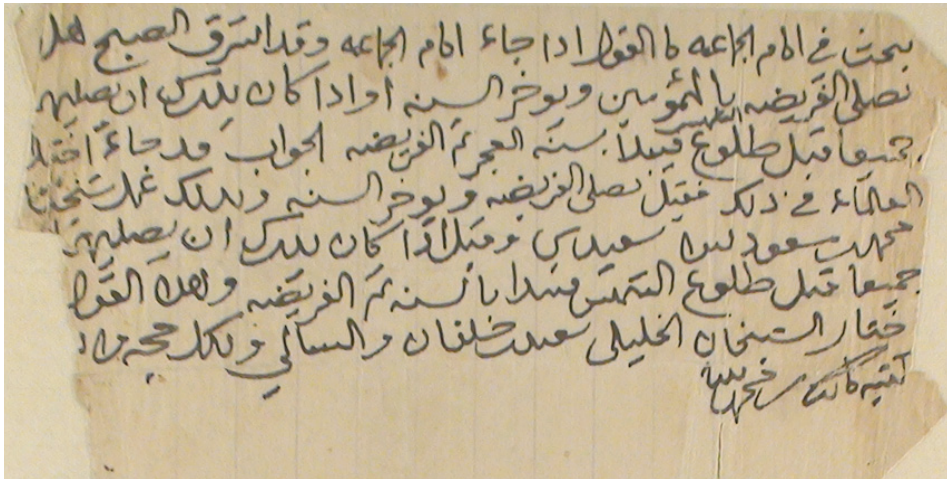 بحث في امام الجماعه ما القول اذا جاء امام الجماعه وقد اشرق الصبح هل
نصلي الفريضه بالمؤمين ويوخر السنه او اذا كان يدرك ان يصليها
جميعا قبل طلوع الشمس فيبدأ بسنه الفجر ثم الفريضه الجواب قد جاء اختلا
العلماء في ذلك فقيل يصلي الفريضه ويوخر السنه وبذلك عمل شيخنا
محمد بن سعود سعيد وقيل اذا كان يدرك ان يصليها
جميعا قبل طلوع الشمس فيبدا بالسنه ثم الفريضه وهذا القول
ختار الشيخان الخليلي سعيد بن خلفان والسالمي ولكل حجه
كتبه